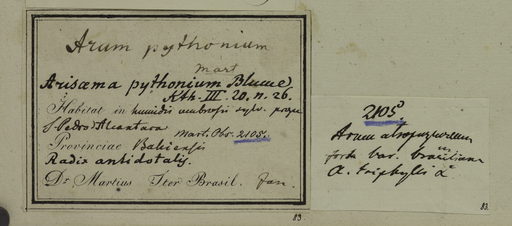 Arum pythonium
Mart
Arisæma pythonium Blume
Kth. III. 20. n. 26.
Habitat in humidis umbrosis sylv. prope
S. Pedro d'Alcantara Mart. Obs. 2105.
Provinciae Bahiensis
Radix antidotalis.
Dr. Martius Iter Brasil. Jan.
83
2105
Arum atropurpureum
forte var. brasiliana
A. triphylli L.
83.